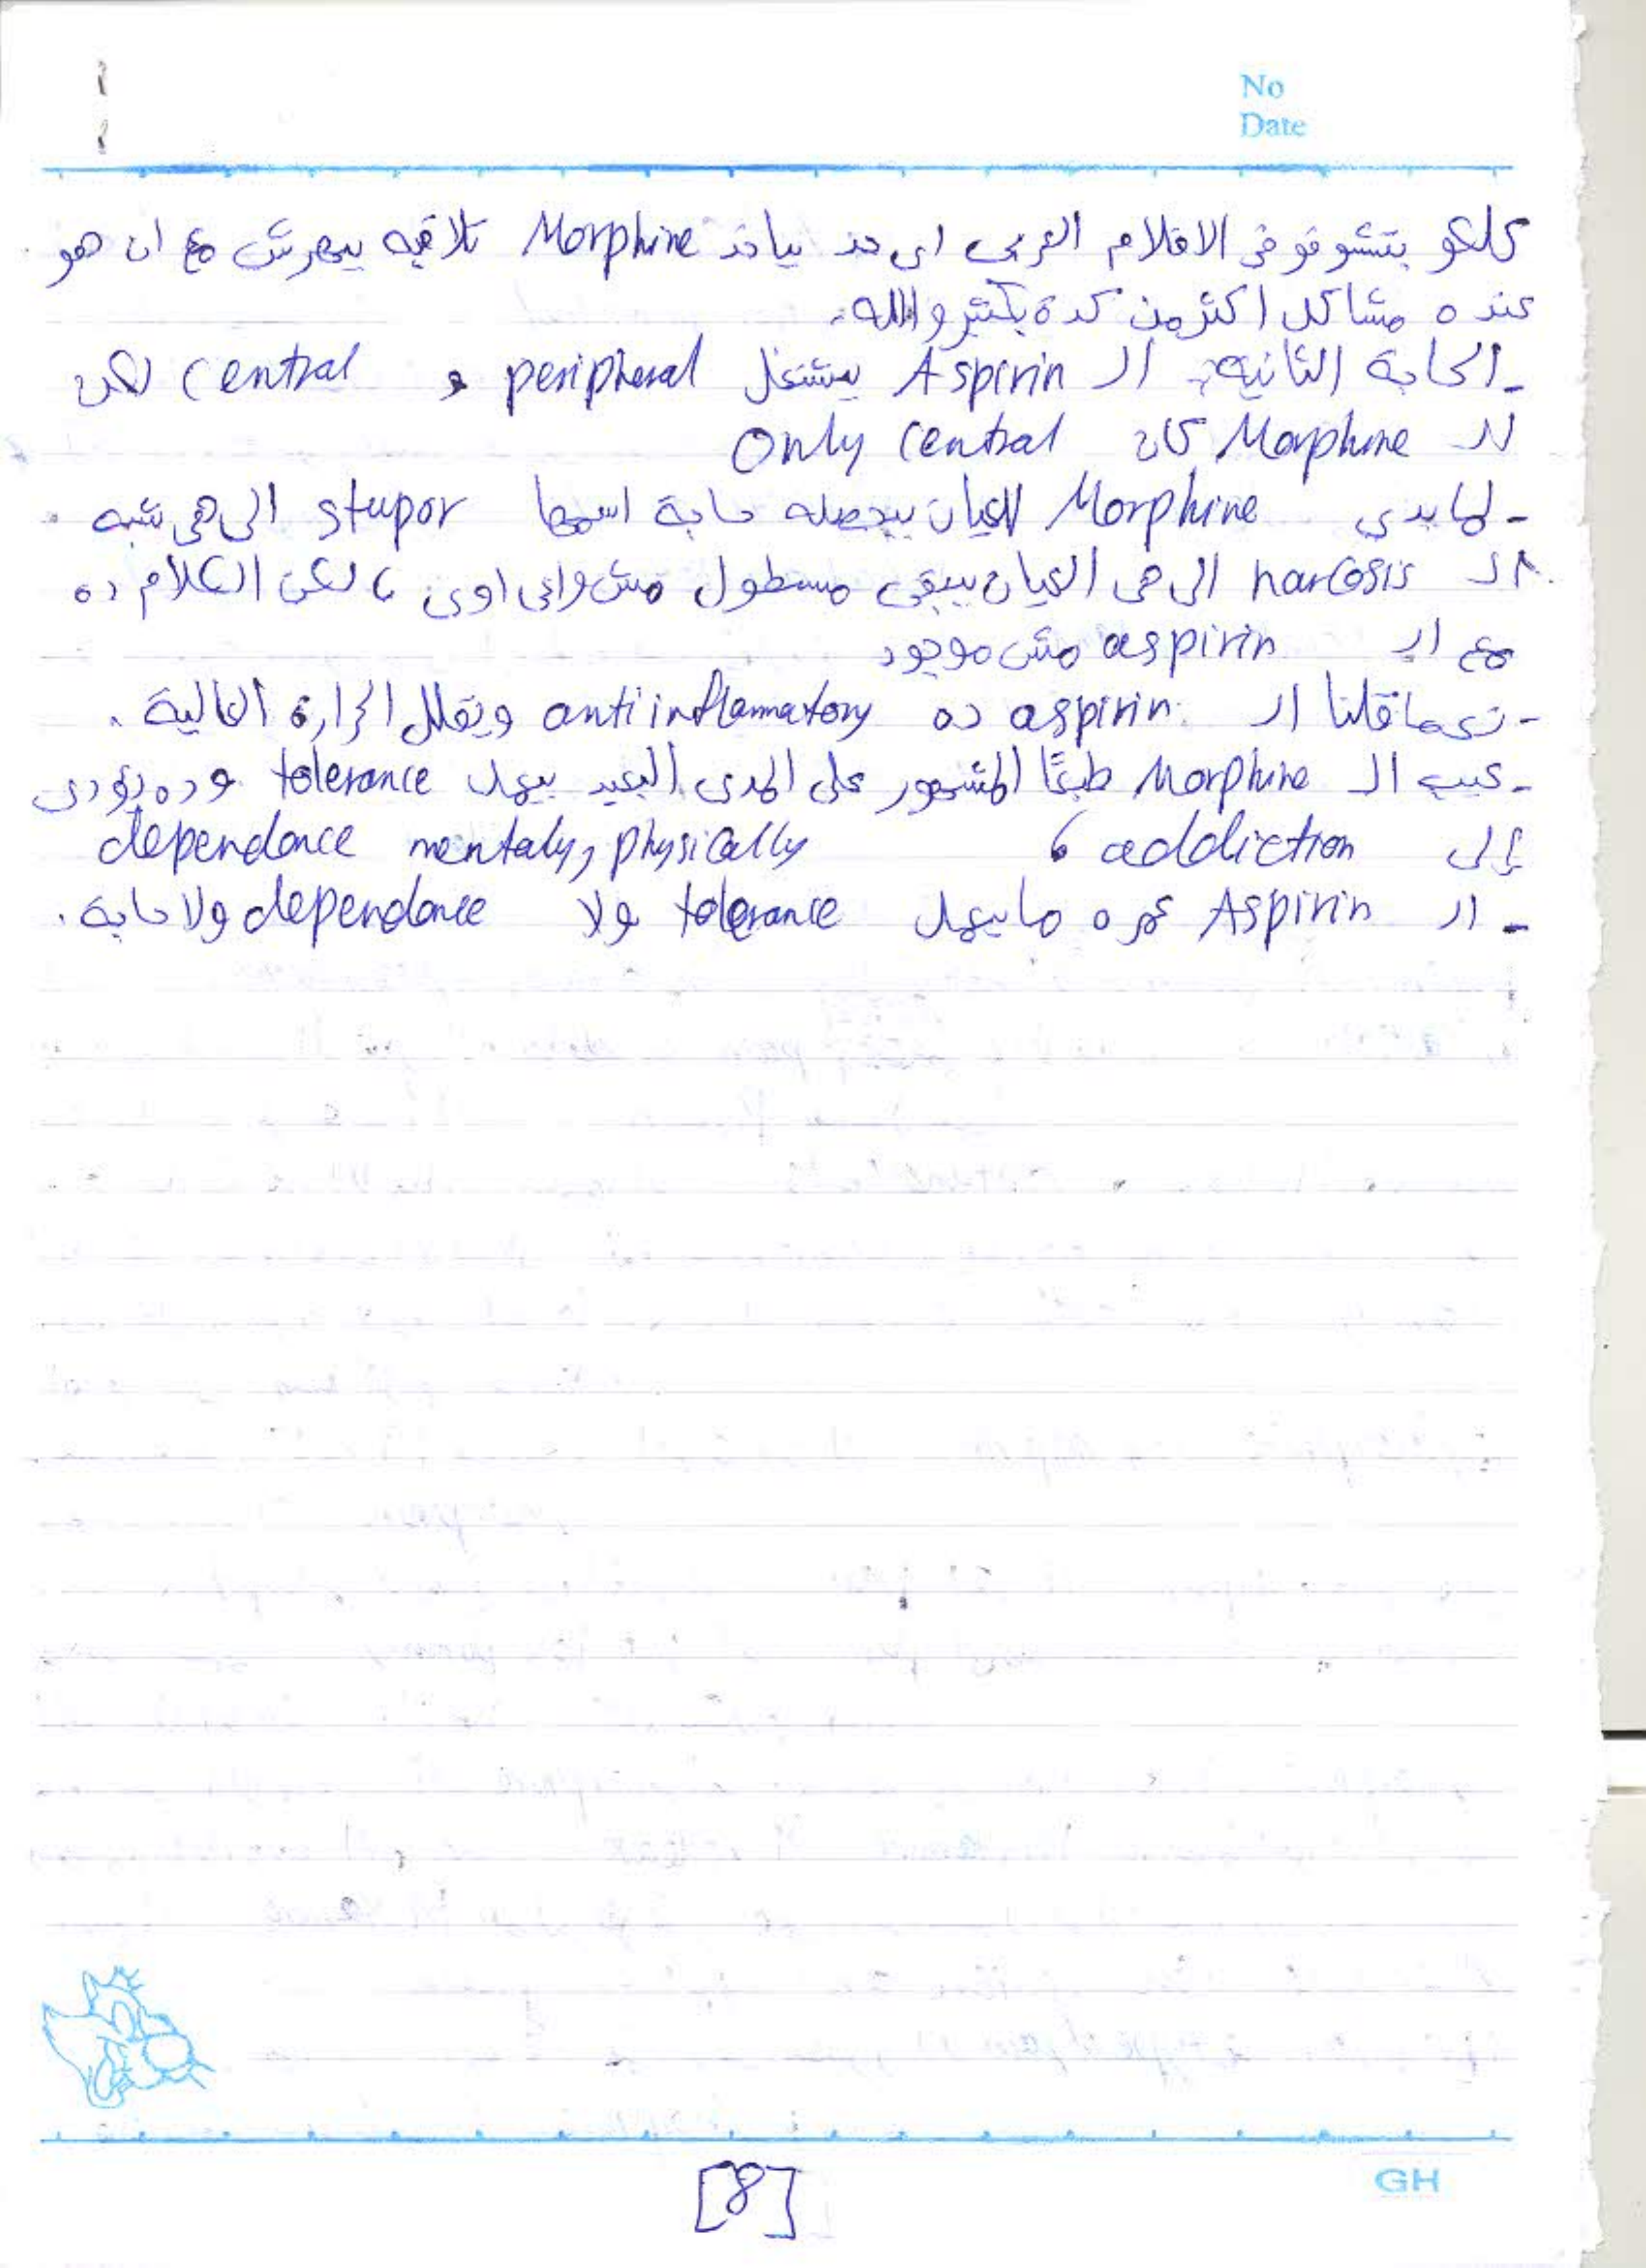 No
Date
كلكو بتشوفو فى الافلام العربى اى حد بياخد Morphine تلاقيه بيهرش مع ان هو
عنده مشاكل اكثر من كدة بكتير والله.
- الحاجة الثانية: الـ Aspirin بيشتغل peripheral و central لكن
الـ Morphine كان Only central
- لما بدى Morphine للعيان بيحصله حاجة اسمها stupor الى هى شبه
الـ narcosis الى هى العيان بيبقى مسطول مش واعى اوى، لكن الكلام ده
مع الـ aspirin مش موجود
- زى ما قلنا الـ aspirin ده antiinflammatory ويقلل الحرارة العالية.
- عيب الـ Morphine طبعًا المشهور على المدى البعيد بيعمل tolerance وده يؤدى
إلى addiction ، dependance mentaly, physically
- الـ Aspirin عمره ما يعمل tolerance ولا dependance ولا حاجة.
[8]
GH